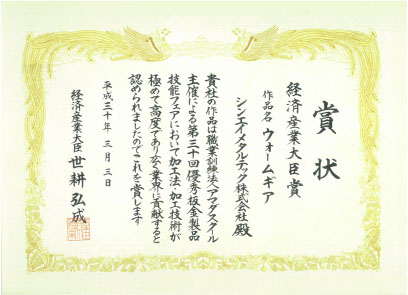 賞状
経済産業大臣賞
作品名 ウォームギア
シンエイメタルテック株式会社 殿
貴社の作品は職業訓練法人アマダスクール
主催による第三十回優秀板金製品
技能フェアにおいて加工法・加工技術が
極めて高度であり広く業界に貢献すると
認められましたのでこれを賞します
平成三十年 三月 三日
経済産業大臣 世耕弘成